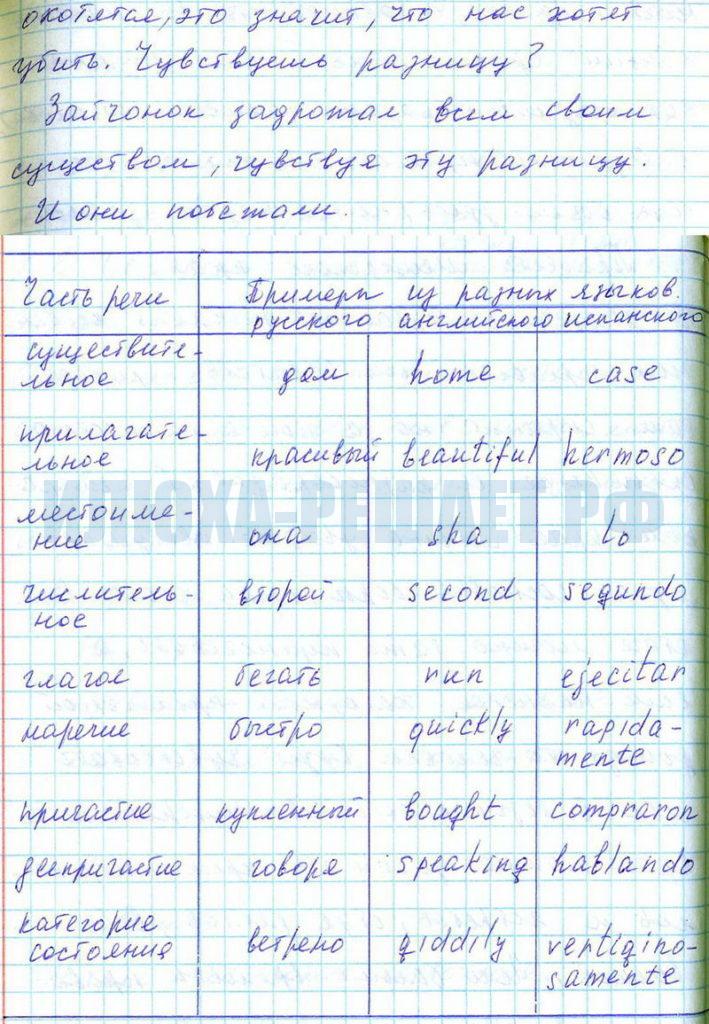 окотятся, это значит, что нас хотят
убить. Чувствуешь разницу?
Зайчонок задрожал всем своим
существом, чувствуя эту разницу.
И они побежали.
Часть речи Примеры из разных языков.
русского английского испанского
существите-
льное дом home case
прилагате-
льное красивый beautiful hermoso
ИЛЮХА-РЕШАЕТ.РФ
местоиме-
ние она sha lo
числитель-
ное второй second segundo
глагол бегать run ejecitar
наречие быстро quickly rapida-
mente
причастие купленный bought compraron
деепричастие говоря speaking hablando
категорие
состояния ветрено giddily vertigino-
samente